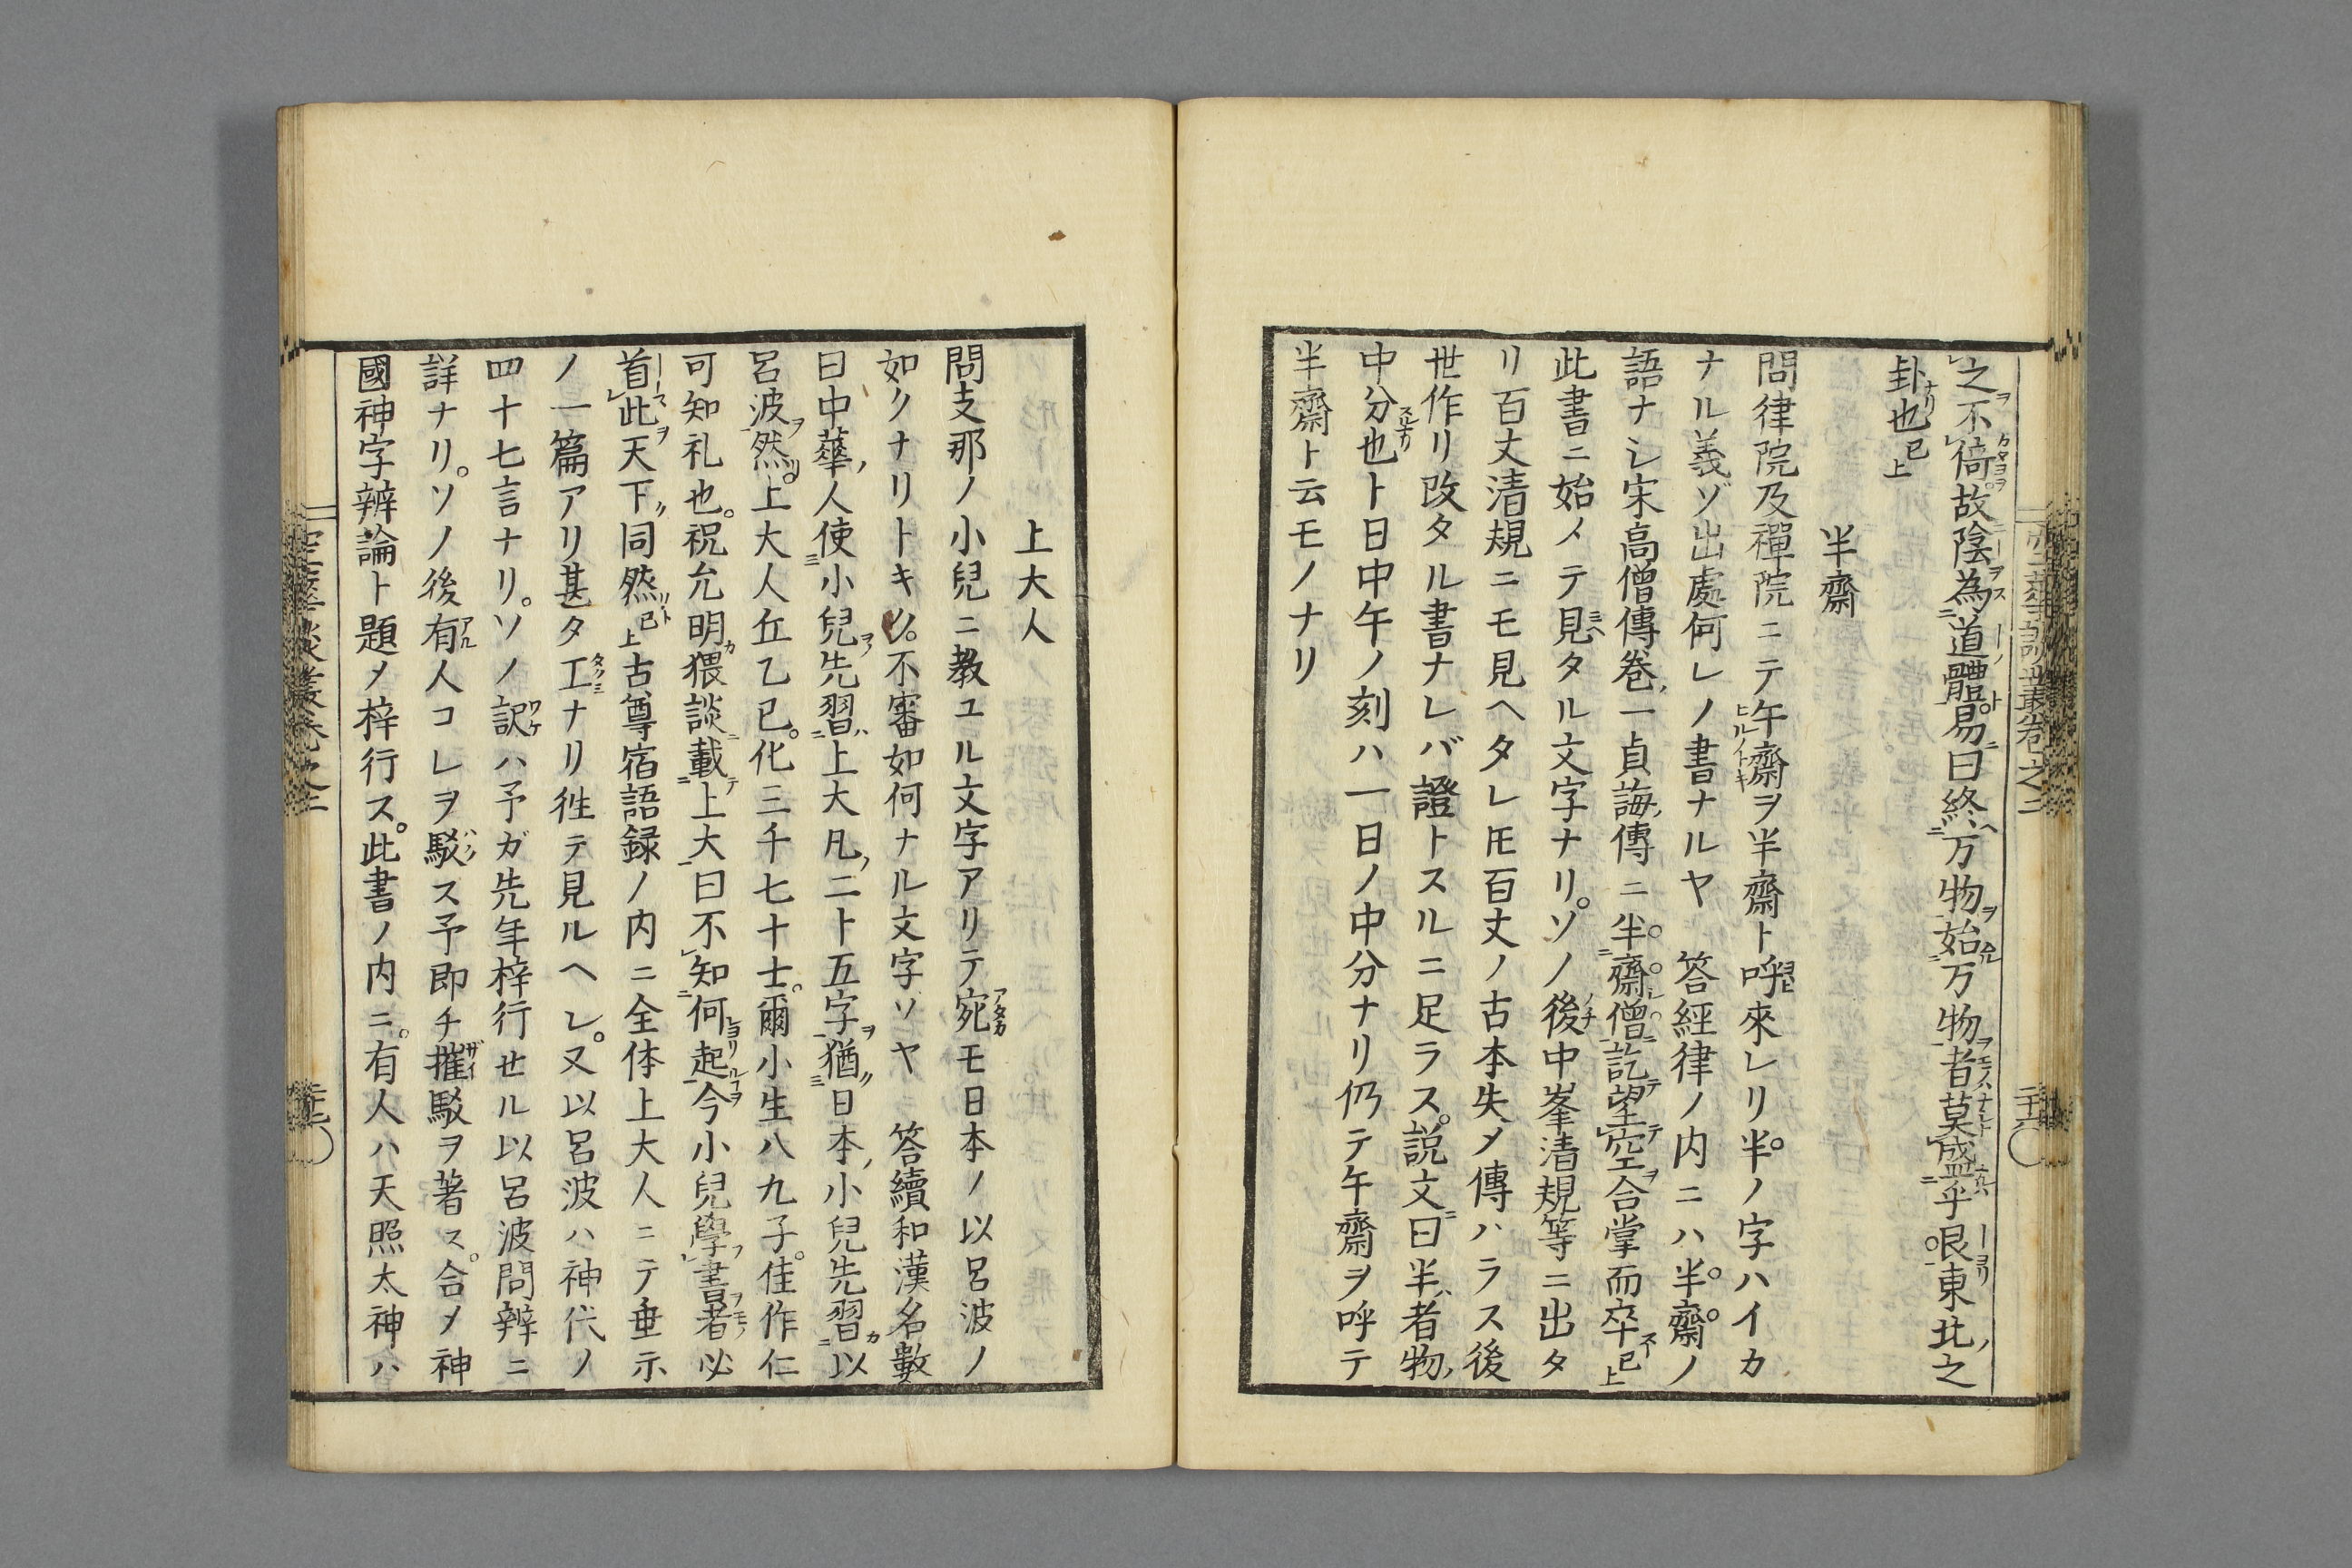 之不倚故陰為道體易曰終万物始万物者莫盛乎艮東北之
卦也已上
半齋
問律院及禪院ニテ午齋ヲ半齋ト呼來レリ半ノ字ハイカ
ナル義ゾ出處何レノ書ナルヤ 答經律ノ内ニハ半齋ノ
語ナシ宋高僧傳卷一貞誨傳ニ半齋僧訖望空合掌而卒已上
此書ニ始メテ見タル文字ナリ。ソノ後中峯清規等ニ出タ
リ百丈清規ニモ見ヘタレ𪜈百丈ノ古本失メ傳ハラス後
世作リ改タル書ナレバ證トスルニ足ラス。説文曰半者物
中分也ト日中午ノ刻ハ一日ノ中分ナリ仍テ午齋ヲ呼テ
半齋ト云モノナリ
上大人
問支那ノ小兒ニ教ユル文字アリテ宛モ日本ノ以呂波ノ
如クナリトキク。不審如何ナル文字ソヤ 答續和漢名數
曰中華人使小兒先習上大凡二十五字猶日本小兒先習以
呂波然。上大人丘乙已。化三千七十士。爾小生八九子。佳作仁
可知礼也。祝允明猥談載上大曰不知何起今小兒學書者必
首此天下同然已上古尊宿語録ノ内ニ全体上大人ニテ垂示
ノ一篇アリ甚タ工ナリ徃テ見ルヘレ。又以呂波ハ神代ノ
四十七言ナリ。ソノ訳ハ予ガ先年梓行せル以呂波問辨ニ
詳ナリ。ソノ後有人コレヲ駁ス予即チ摧駁ヲ著ス。合メ神
國神字辨論ト題メ梓行ス。此書ノ内ニ。有人ハ天照太神ハ